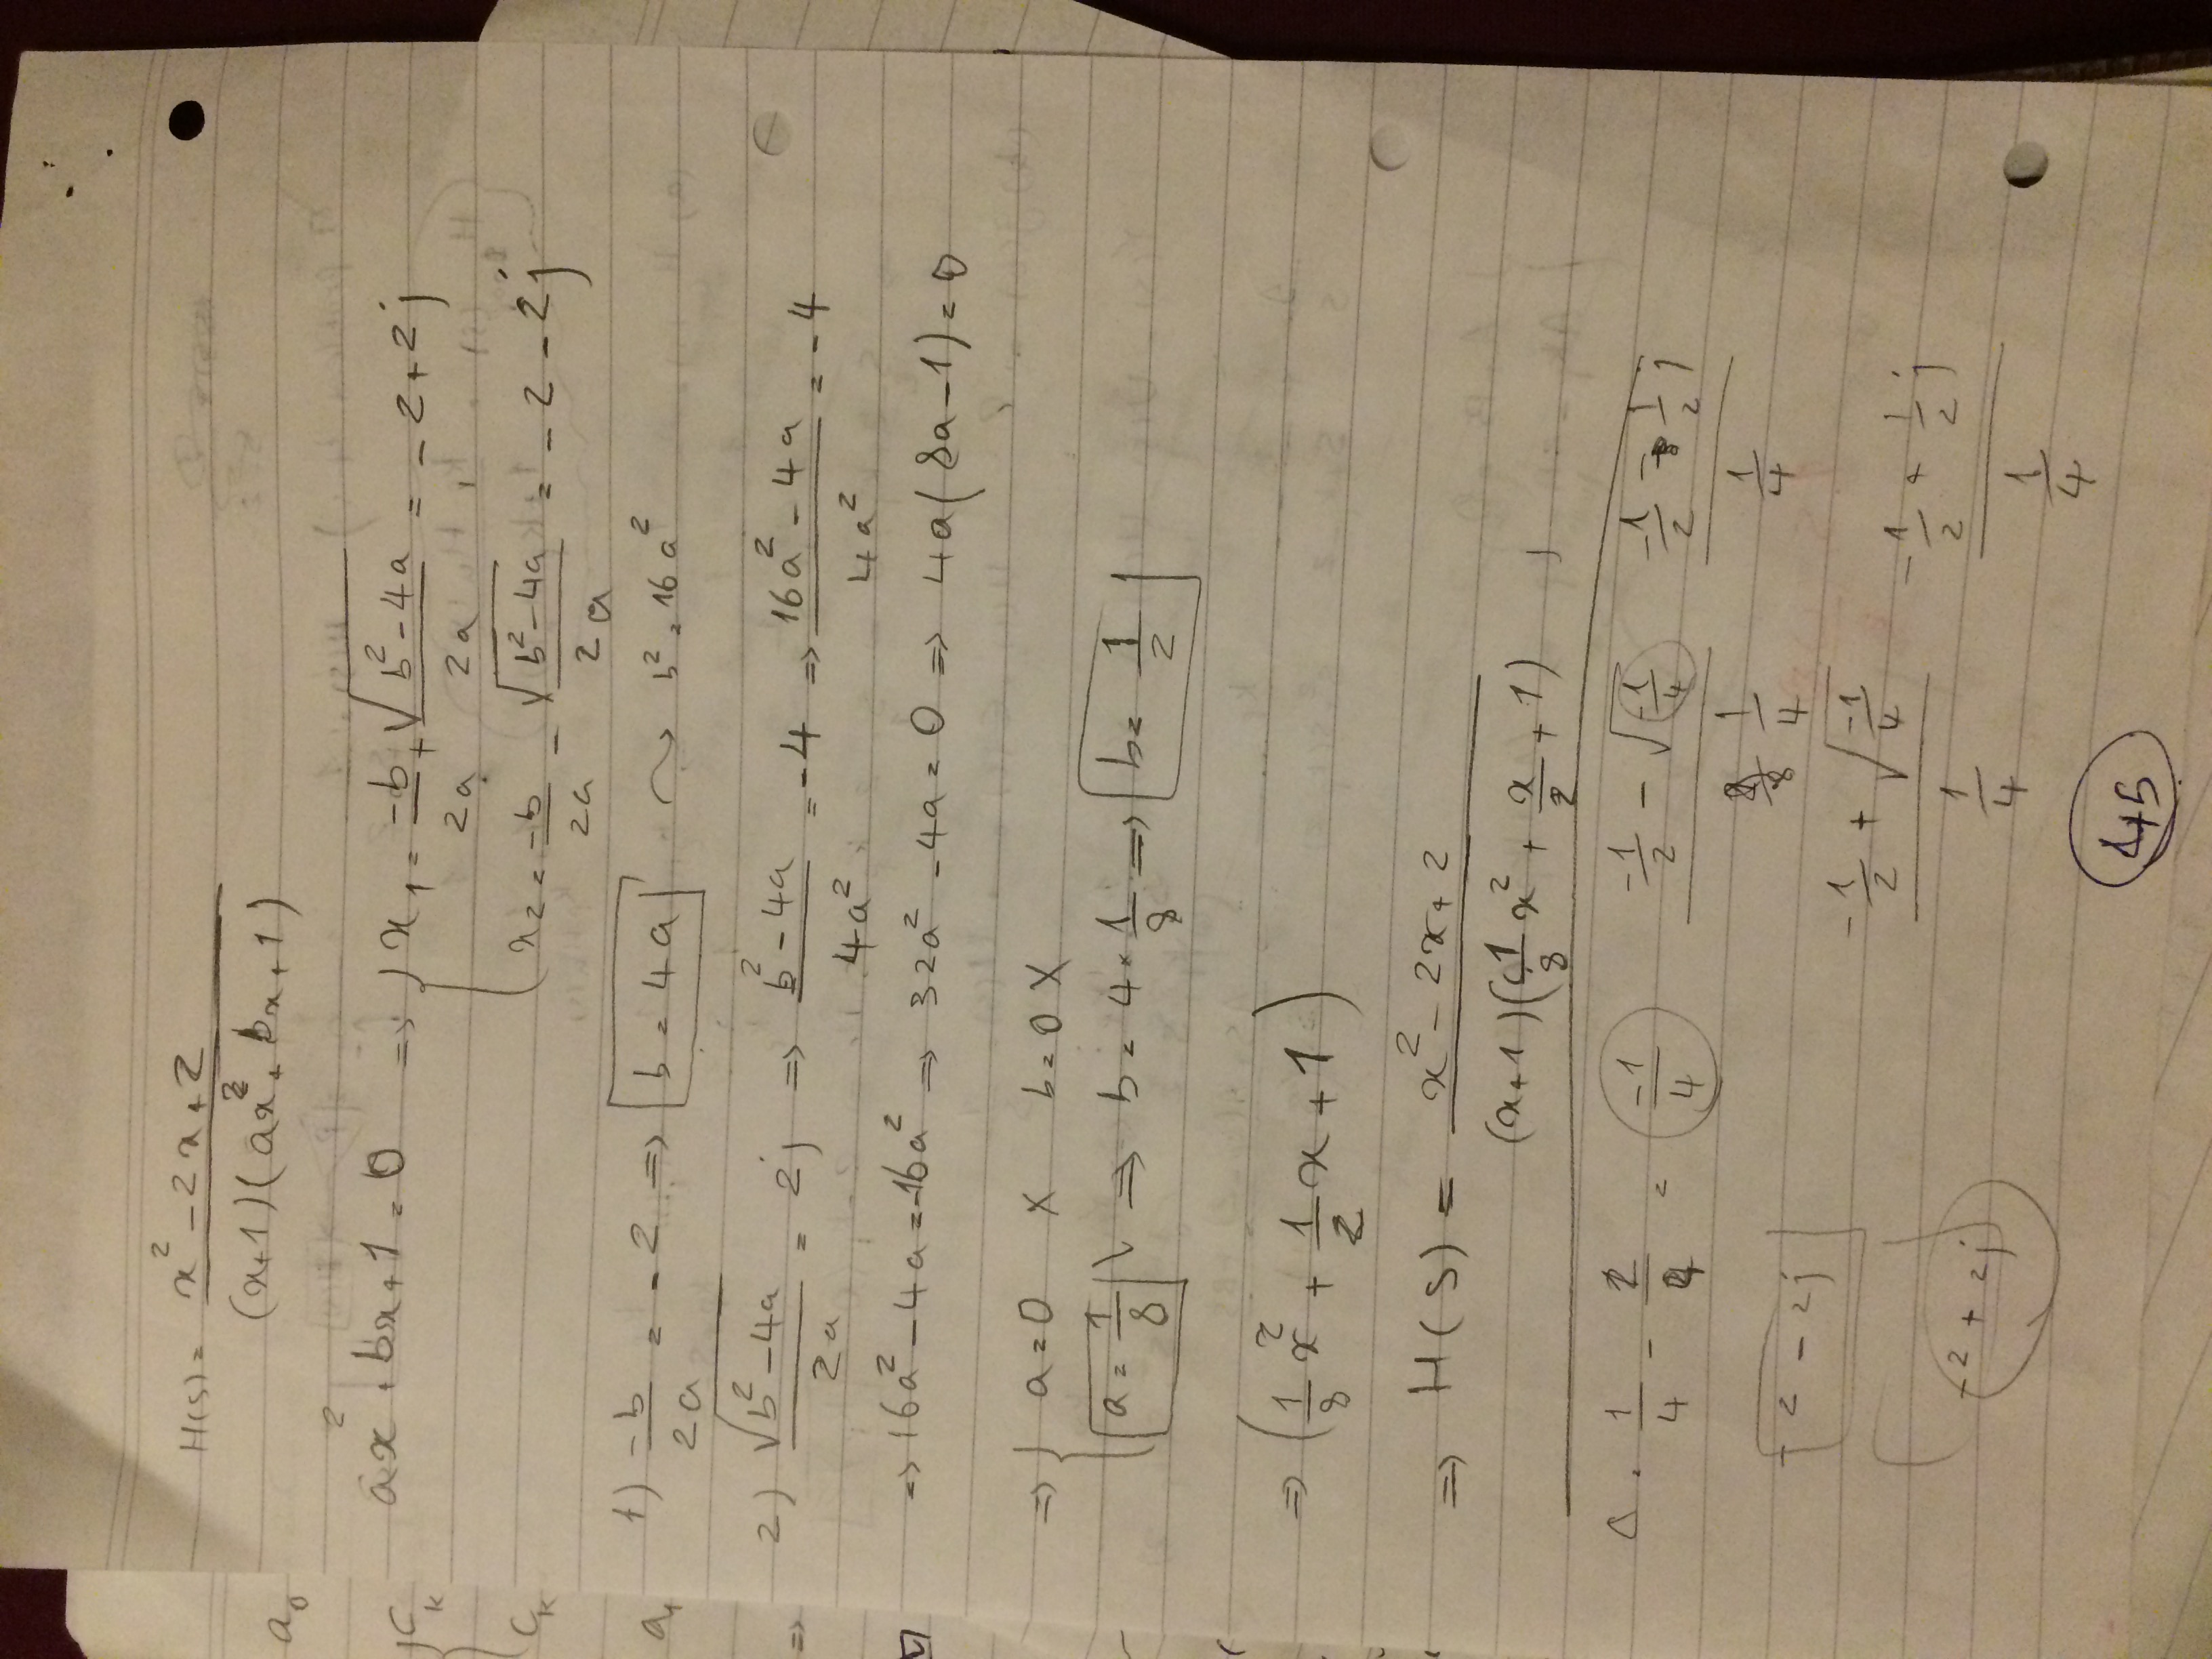 H(s) = (x² - 2x + 2) / ((x+1)(ax² + bx + 1))
a₀
ax² + bx + 1 = 0 => { x₁ = -b/2a + √(b² - 4a)/2a = -2 + 2j
x₂ = -b/2a - √(b² - 4a)/2a = -2 - 2j
C_k
C_k
1) -b/2a = -2 => b = 4a ⤳ b² = 16a²
a₁
2) √(b² - 4a)/2a = 2j => (b² - 4a)/4a² = -4 => (16a² - 4a)/4a² = -4
=>
=> 16a² - 4a = -16a² => 32a² - 4a = 0 => 4a(8a - 1) = 0
=> { a = 0 X b = 0 X
a = 1/8 => b = 4 × 1/8 => b = 1/2
=> (1/8 x² + 1/2 x + 1)
=> H(s) = (x² - 2x + 2) / ((x+1)(1/8 x² + x/2 + 1))
Δ = 1/4 - 2/4 = -1/4 (-1/2 - √(-1/4)) / (1/4) (-1/2 - 1/2 j) / (1/4)
-2 - 2j
(-1/2 + √(-1/4)) / (1/4) (-1/2 + 1/2 j) / (1/4)
-2 + 2j
45